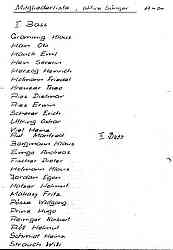 Mitgliederliste, aktive Sänger
I Bass
Gramming Klaus
Ham Otto
Hauck Emil
Hein Serenin
Herzog Heinrich
Hofmann Friedel
Kreuser Theo
Ries Dietmar
Ries Erwin
Scherer Erich
Uhring Oskar
Viel Heinz
Hut Manfred
II Bass
Bergmann Klaus
Emge Andreas
Fischer Dieter
Hofmann Klaus
Jordan Egon
Kolser Helmut
Mahary Fritz
Wolfgang
Prinz Hugo
Reiniger Norbert
Helmut
Schmidt Heinz
Strauch Willi